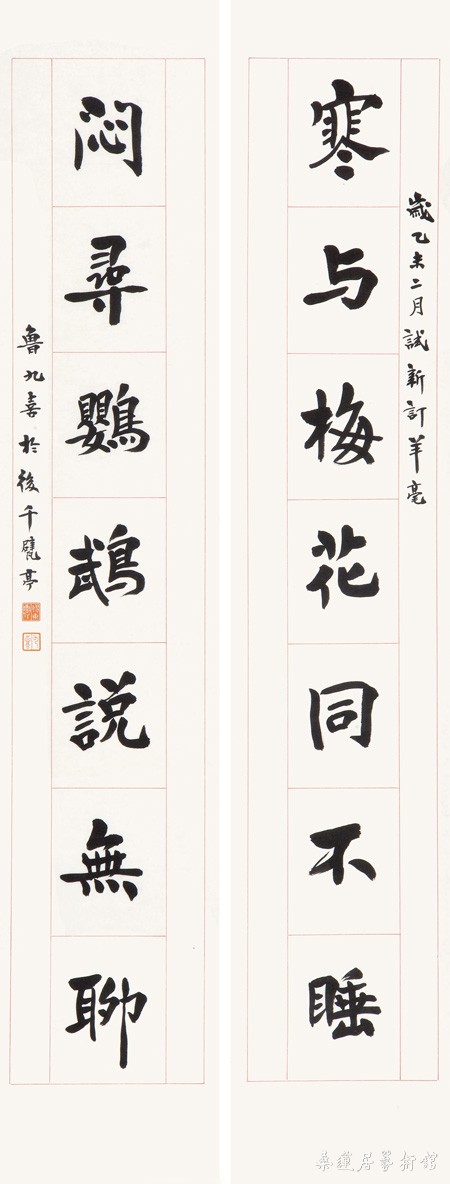 寒与梅花同不睡
歲乙未二月試新訂羊毫
悶尋鸚鵡說無聊
魯九喜於後千甓亭
桑蓮居藝術館